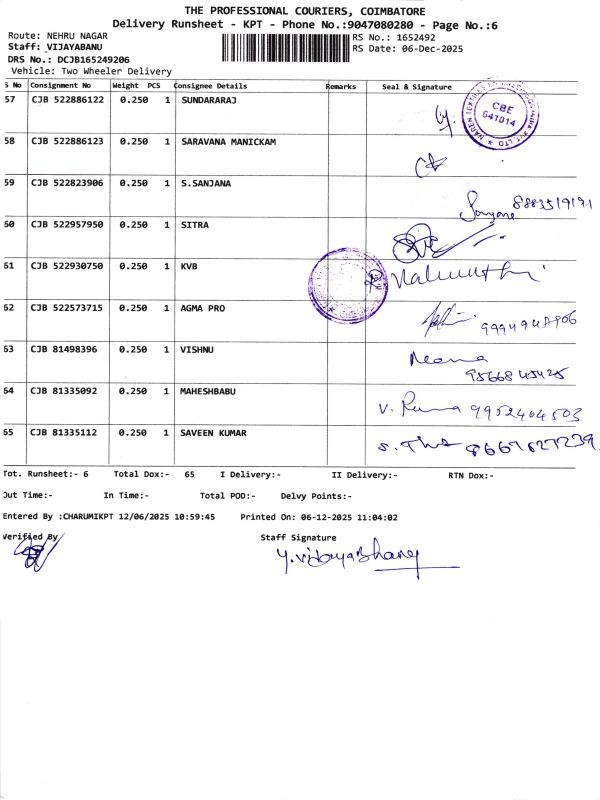 THE PROFESSIONAL COURIERS, COIMBATORE
Delivery Runsheet - KPT - Phone No.:9047080280 - Page No.:6
Route: NEHRU NAGAR
RS No.: 1652492
Staff: VIJAYABANU
RS Date: 06-Dec-2025
DRS No.: DCJB165249206
Vehicle: Two Wheeler Delivery
S No Consignment No Weight PCS Consignee Details Remarks Seal & Signature
57 CJB 522886122 0.250 1 SUNDARARAJ
CBE
641014
58 CJB 522886123 0.250 1 SARAVANA MANICKAM
59 CJB 522823906 0.250 1 S.SANJANA
60 CJB 522957950 0.250 1 SITRA
61 CJB 522930750 0.250 1 KVB
62 CJB 522573715 0.250 1 AGMA PRO
63 CJB 81498396 0.250 1 VISHNU
64 CJB 81335092 0.250 1 MAHESHBABU
V. 9952404503
65 CJB 81335112 0.250 1 SAVEEN KUMAR
Tot. Runsheet:- 6 Total Dox:- 65 I Delivery:- II Delivery:- RTN Dox:-
Out Time:- In Time:- Total POD:- Delvy Points:-
Entered By :CHARUMIKPT 12/06/2025 10:59:45 Printed On: 06-12-2025 11:04:02
Verified By Staff Signature